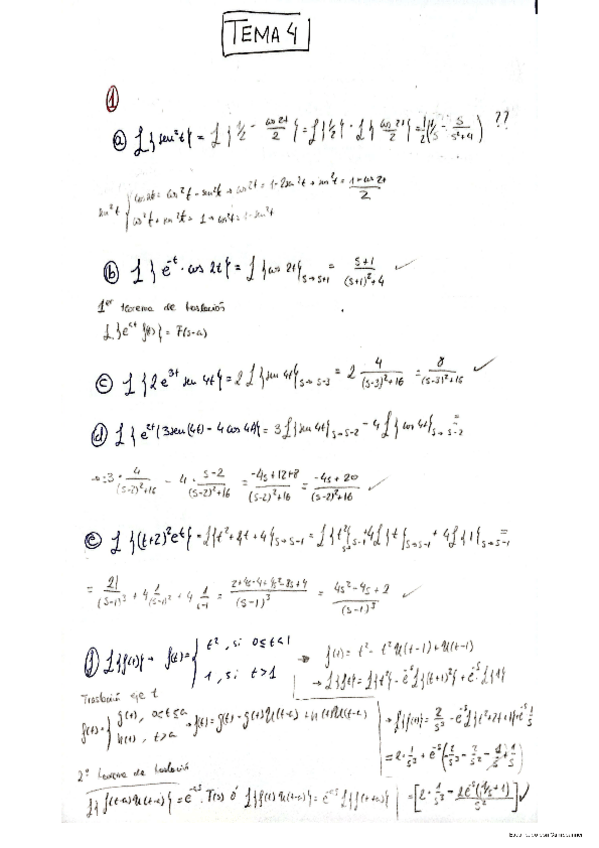 TEMA 4
1
a) L{sen²t} = L{1/2 - cos 2t/2} = L{1/2} - L{cos 2t/2} = 1/2(1/s - s/(s²+4)) ??
sen²t { cos 2t = cos²t - sen²t → cos 2t = 1 - 2sen²t → sen²t = (1 - cos 2t)/2
cos²t + sen²t = 1 → cos²t = 1 - sen²t
b) L{e^-t · cos 2t} = L{cos 2t}s→s+1 = (s+1)/((s+1)²+4) ✓
1er teorema de traslación
L{e^at f(t)} = F(s-a)
c) L{2e^3t sen 4t} = 2L{sen 4t}s→s-3 = 2 4/((s-3)²+16) = 8/((s-3)²+16) ✓
d) L{e^2t(3sen(4t) - 4 cos 4t)} = 3L{sen 4t}s→s-2 - 4L{cos 4t}s→s-2 =
→ = 3 · 4/((s-2)²+16) - 4 · (s-2)/((s-2)²+16) = (-4s+12+8)/((s-2)²+16) = (-4s+20)/((s-2)²+16) ✓
e) L{(t+2)²e^t} = L{t²+4t+4}s→s-1 = L{t²}s→s-1 + 4L{t}s→s-1 + 4L{1}s→s-1 =
= 2!/(s-1)³ + 4 1/(s-1)² + 4 1/(s-1) = (2+4s-4+4s²-8s+4)/(s-1)³ = (4s²-4s+2)/(s-1)³ ✓
f) L{f(t)} → f(t) = { t², si 0≤t≤1 → f(t) = t² - t²u(t-1) + u(t-1)
1, si t>1 → L{f(t)} = L{t²} - e^-s L{(t+1)²} + e^-s L{1}
Traslación eje t
f(t) = { g(t), 0≤t≤a → f(t) = g(t) - g(t)u(t-a) + h(t)u(t-a) → L{f(t)} = 2/s³ - e^-s L{t²+2t+1} + e^-s 1/s
h(t), t>a = 2 · 1/s³ + e^-s(-2/s³ - 2/s² - 1/s + 1/s)
2º teorema de traslación
L{f(t-a)u(t-a)} = e^-as · F(s) ó L{f(t)u(t-a)} = e^-as L{f(t+a)} = [2 · 1/s³ - 2e^-s(1/s+1)/s²] ✓